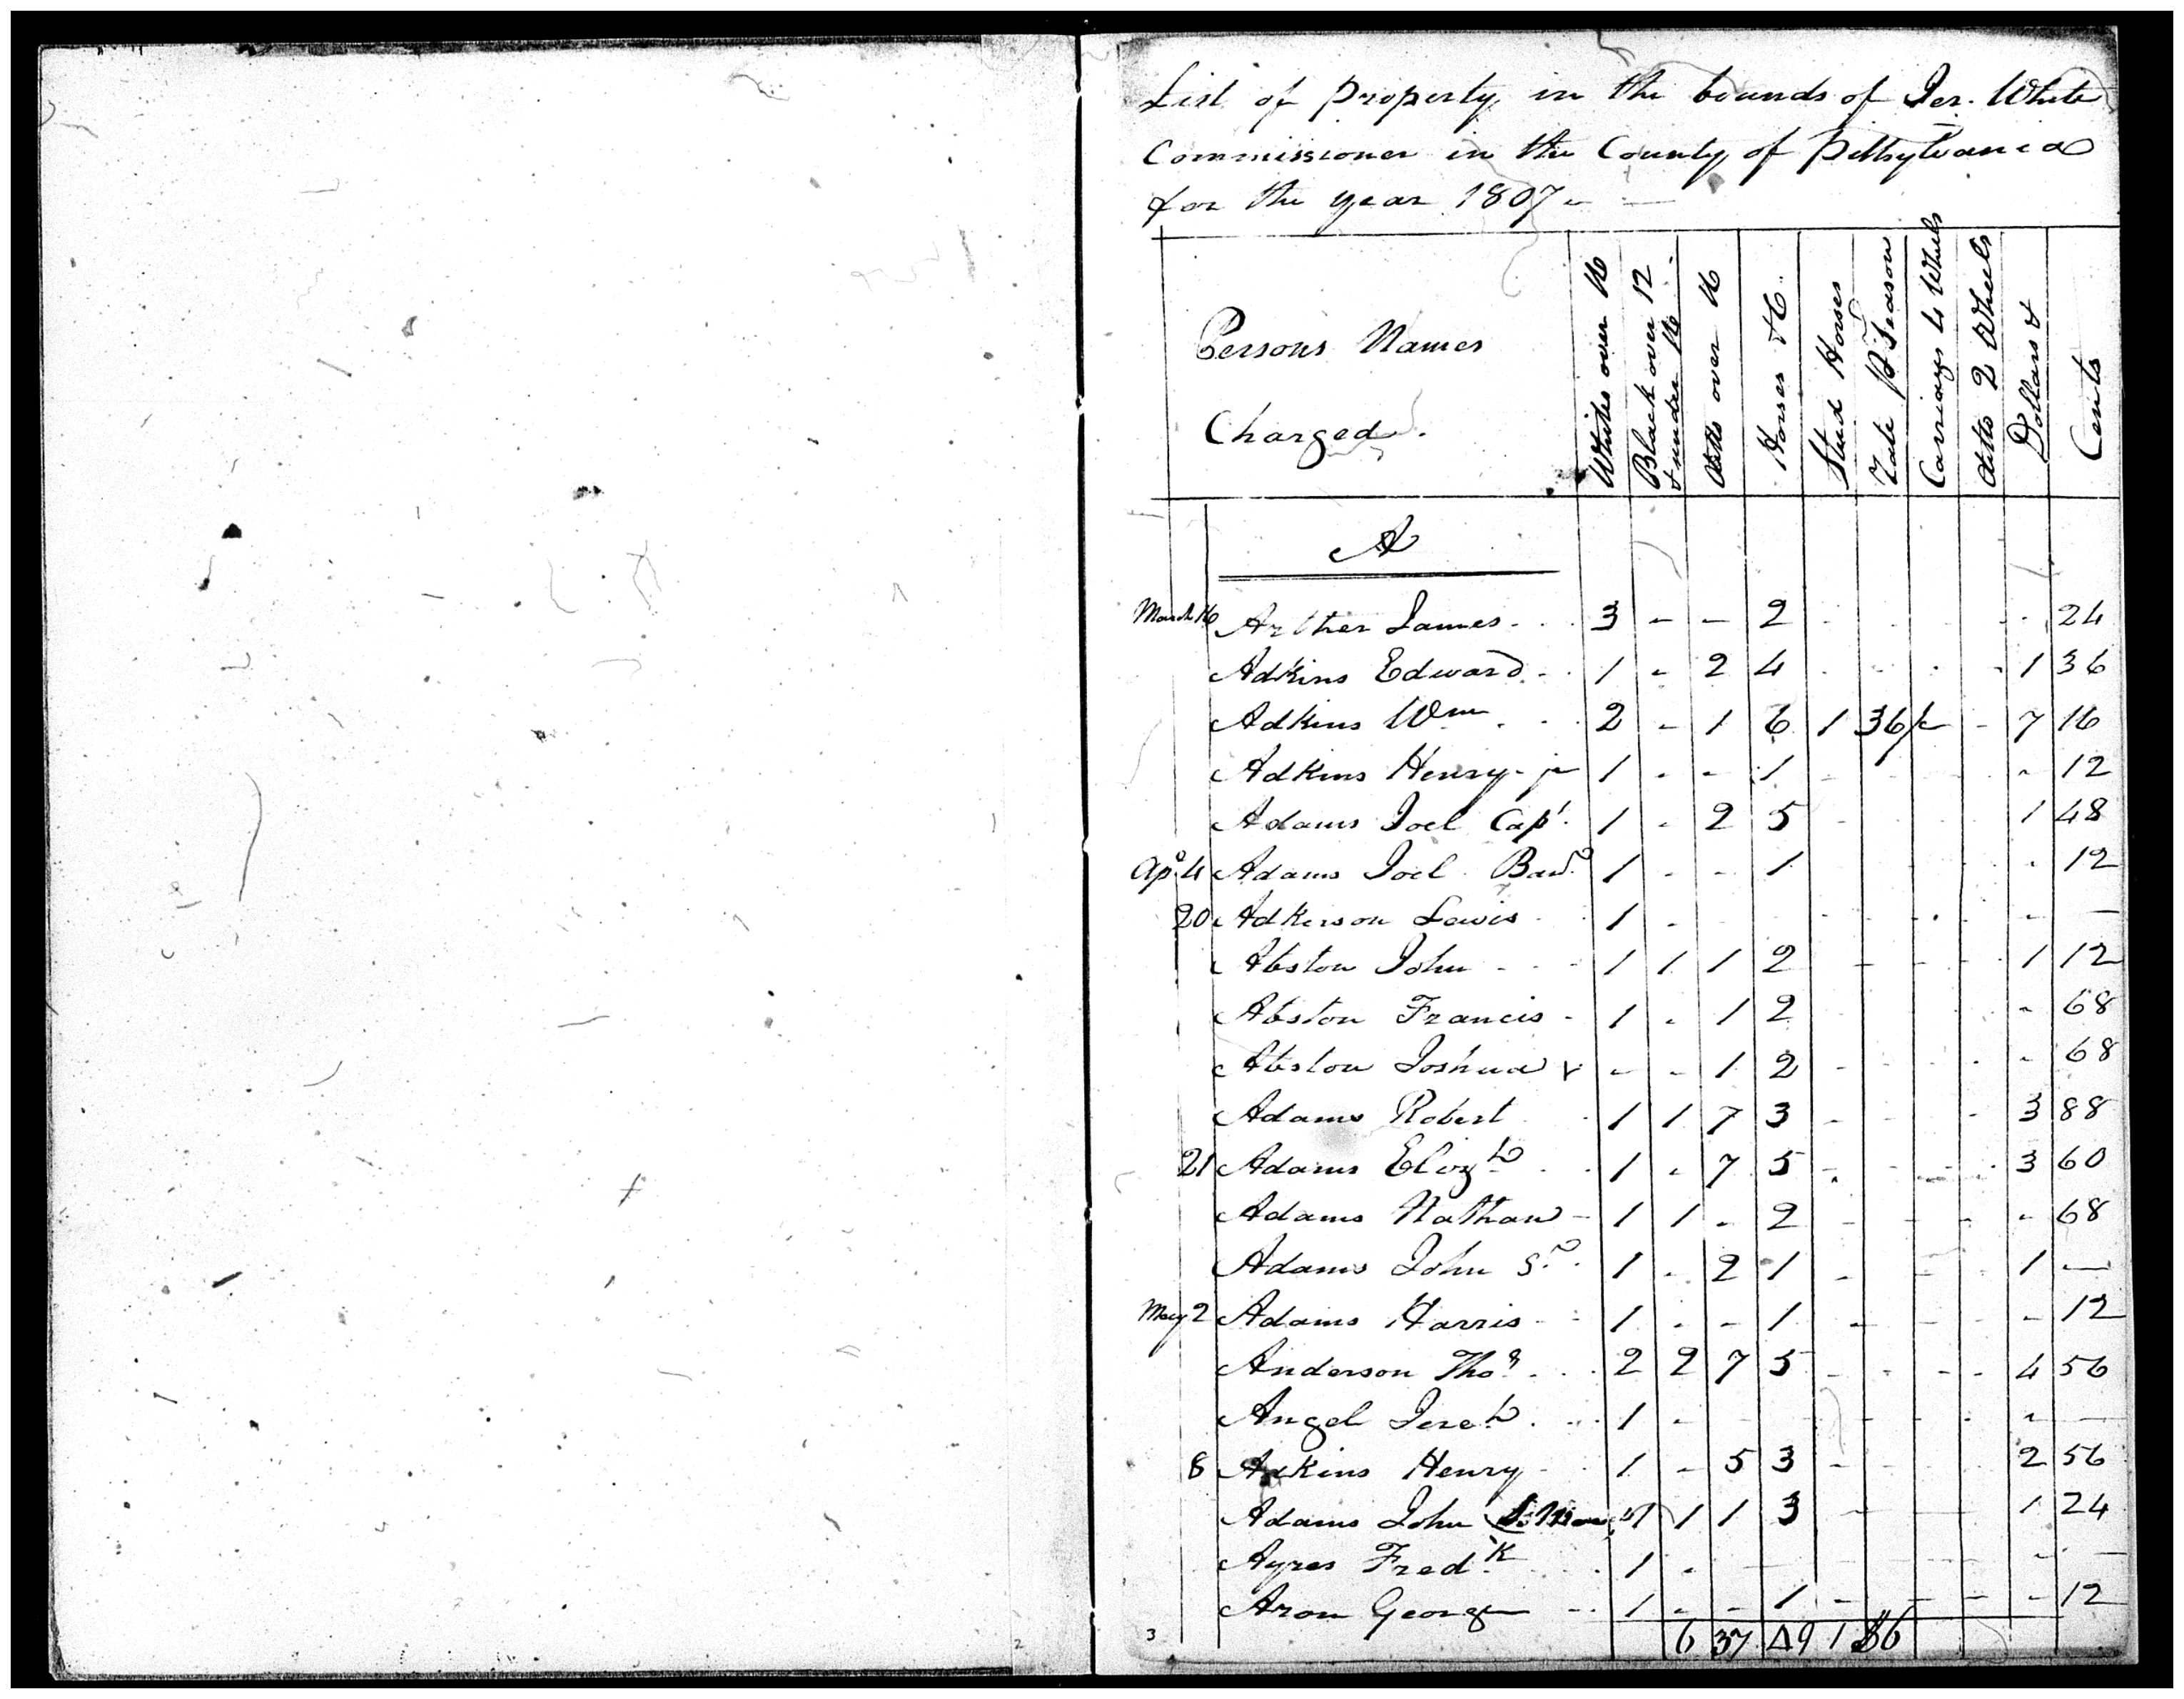 List of property in the bounds of Jer. White
Commissioner in the County of Pittsylvania
for the year 1807
Persons Names Charged.
Whites over 16
Black over 12 & under 16
ditto over 16
Horses &C.
Stud Horses
Rate pr Season
Carriages 4 Wheels
ditto 2 Wheels
Dollars &
Cents
A
March 16 Arther James - 3 - - 2 24
Adkins Edward - 1 - 2 4 1 36
Adkins Wm 2 - 1 6 1 36/ - 7 16
Adkins Henry jr 1 - - 1 - 12
Adams Joel Capt. 1 - 2 5 1 48
Ap. 4 Adams Joel 1 - - 1 12
20 Adkerson Lewis 1 - - -
Abston John - 1 1 1 2 1 12
Abston Francis - 1 - 1 2 - 68
Abston Joshua - - 1 2 - 68
Adams Robert 1 1 7 3 - 3 88
21 Adams Elizh 1 - 7 5 - 3 60
Adams Nathan - 1 1 - 2 - 68
Adams John Sr. 1 - 2 1 - 1 -
May 2 Adams Harris - 1 - - 1 - 12
Anderson Thos. 2 2 7 5 - 4 56
Angel Jereh. 1 - - -
8 Adkins Henry - 1 - 5 3 - 2 56
Adams John 1 1 1 3 - 1 24
Ayres Fredk 1 - - -
Aron George - 1 - - 1 - 12
3 2 6 37 49 1 36